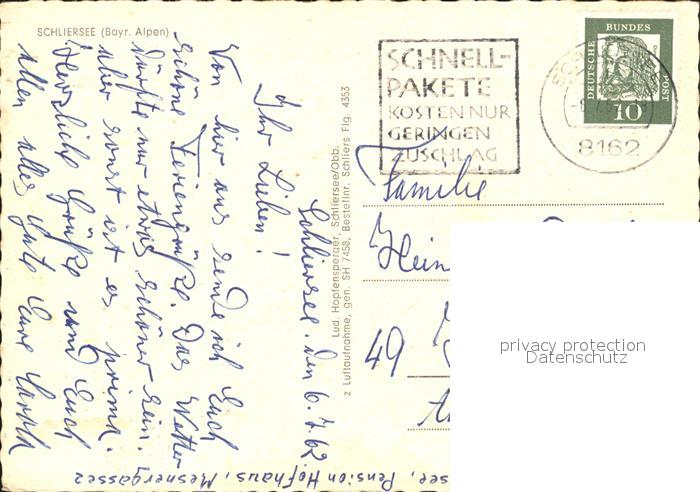 SCHLIERSEE (Bayr. Alpen)
Schliersee, den 6.7.62
Ihr Lieben!
Von hier aus sende ich Euch
schöne Feriengrüße. Das Wetter
dürfte nur etwas schöner sein.
aber sonst ist es prima.
Herzliche Grüße und Euch
allen alles Gute Eure
see, Pension Hofhaus, Mesnergasse 2
Lud. Hopfensperger, Schliersee/Obb.
z Luftaufnahme, gen. SH 7458, Bestellnr. Schliers Flg. 4353
SCHNELL-
PAKETE
KOSTEN NUR
GERINGEN
ZUSCHLAG
8162
DEUTSCHE BUNDESPOST
10
Familie
Hein
49
privacy protection
Datenschutz